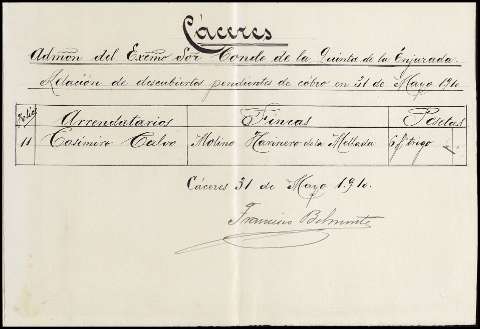 Cáceres
Admón del Excmo Sor Conde de la Quinta de la Enjarada.
Relación de descubiertos pendientes de cobro en 31 de Mayo 1910
Folio Arrendatarios Fincas Pesetas
11 Casimiro Calvo Molino Harinero de la Mellada trigo
Cáceres 31 de Mayo 1910.
Francisco Belmonte